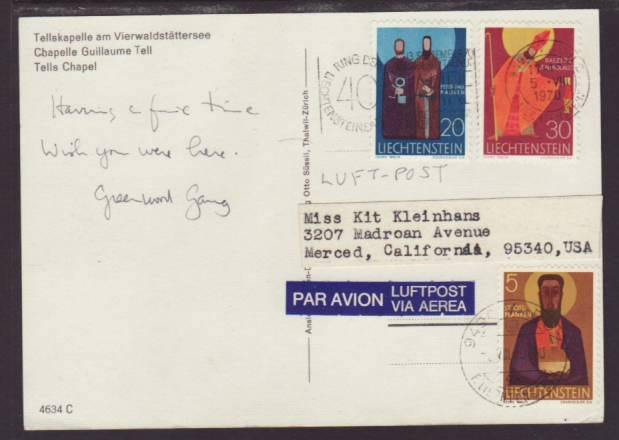 Tellskapelle am Vierwaldstättersee
Chapelle Guillaume Tell
Tells Chapel
Having a fine time
Wish you were here.
Greenwood Gang
4634 C
Otto Süssli, Thalwil-Zürich
40
PETER UND
PAULUS
20
LIECHTENSTEIN
BALZERS
ST. NIKOLAUS
30
LIECHTENSTEIN
5
1970
LUFT-POST
Miss Kit Kleinhans
3207 Madroan Avenue
Merced, California, 95340,USA
PAR AVION
LUFTPOST
VIA AEREA
5
PLANKEN
LIECHTENSTEIN